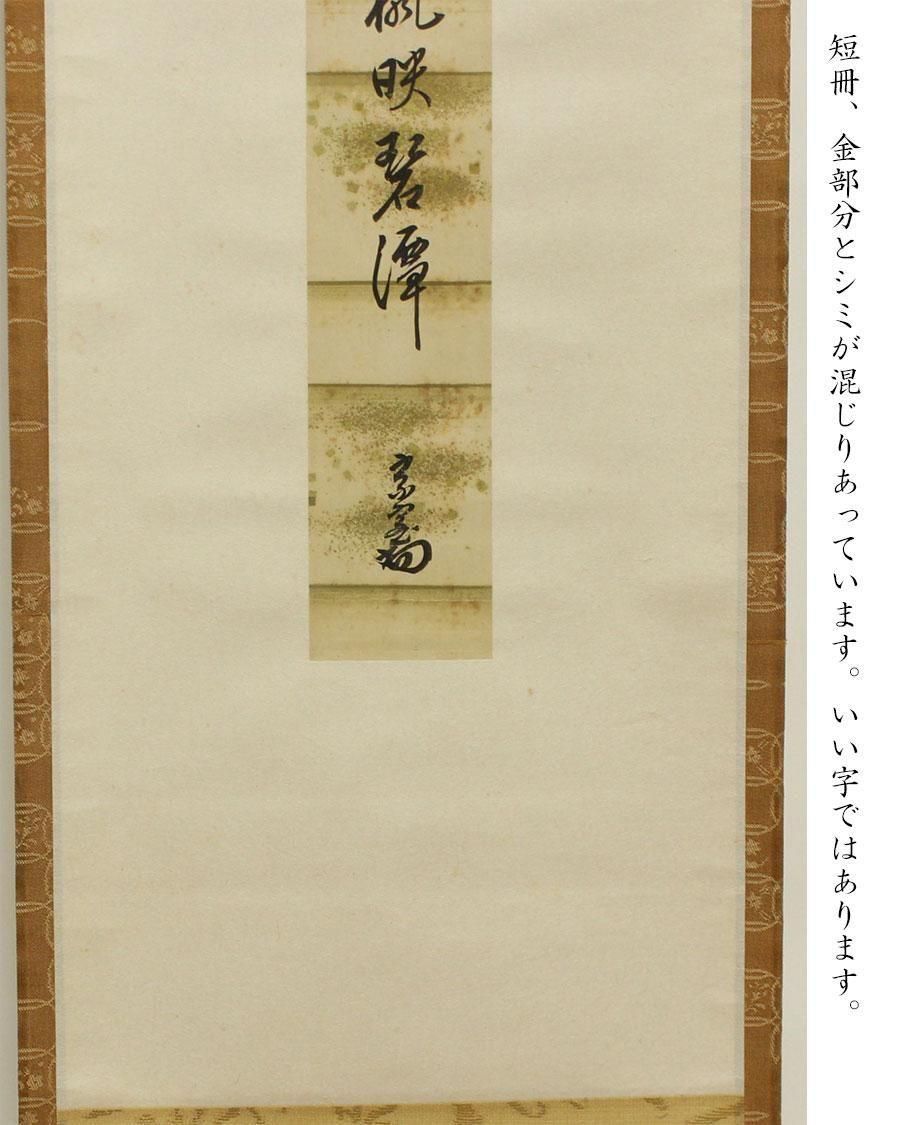 短冊、金部分とシミが混じりあっています。いい字ではあります。
楓映碧潭